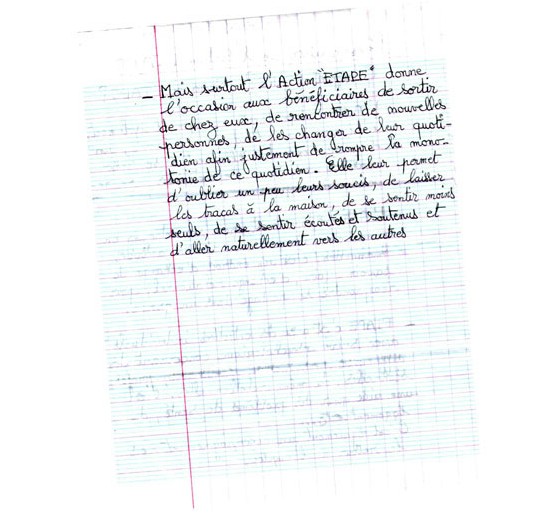 - Mais surtout l'Action "ETAPE" donne
l'occasion aux bénéficiaires de sortir
de chez eux, de rencontrer de nouvelles
personnes, de les changer de leur quoti-
dien afin justement de rompre la mono-
tonie de ce quotidien. Elle leur permet
d'oublier un peu leurs soucis, de laisser
les tracas à la maison, de se sentir moins
seuls, de se sentir écoutés et soutenus et
d'aller naturellement vers les autres